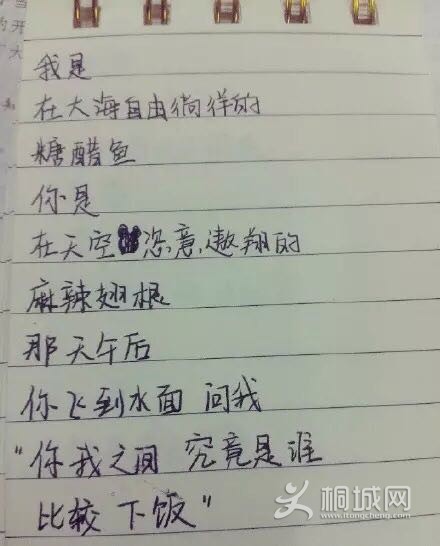 我是
在大海自由徜徉的
糖醋鱼
你是
在天空恣意遨翔的
麻辣翅根
那天午后
你飞到水面 问我
“你我之间 究竟是谁
比较 下饭”
桐城网
www.tongcheng.com